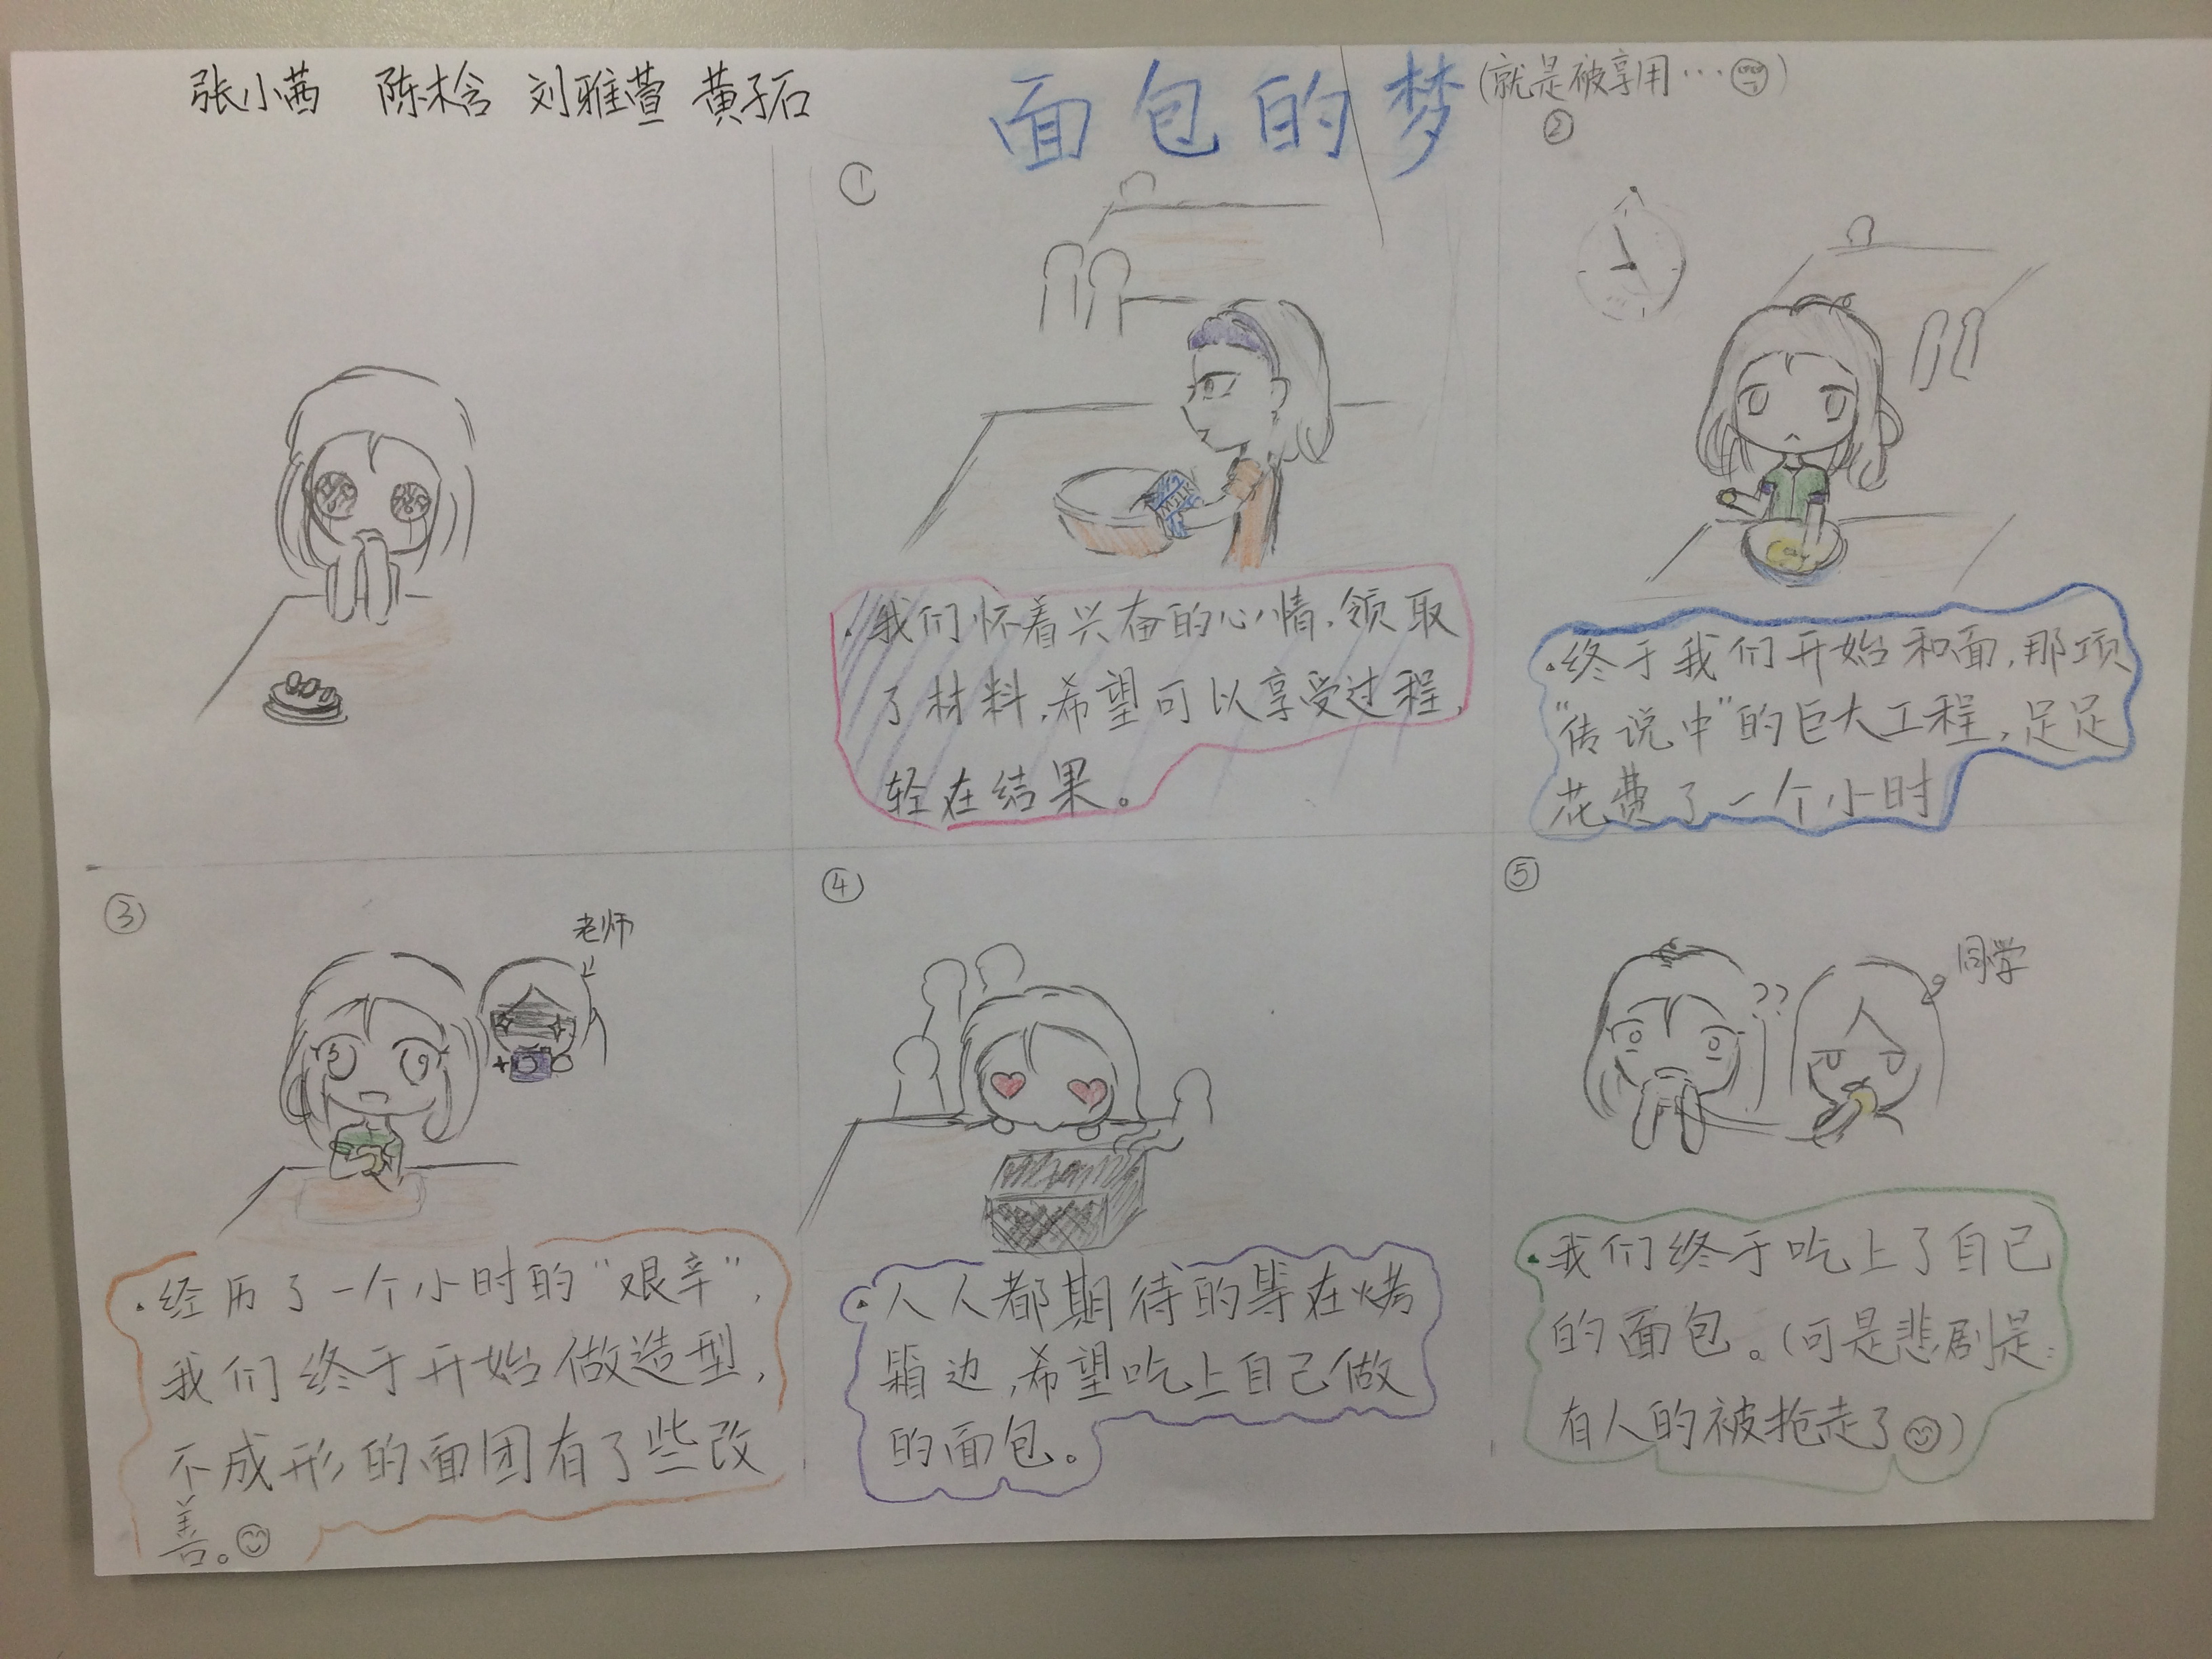 张小茜 陈木晗 刘雅萱 黄子石
面包的梦(就是被享用…)
①
MILK
·我们怀着兴奋的心情,领取
了材料,希望可以享受过程,
轻在结果。
②
·终于我们开始和面,那项
“传说中”的巨大工程,足足
花费了一个小时
③
老师
·经历了一个小时的“艰辛”,
我们终于开始做造型,
不成形的面团有了些改
善。
④
·人人都期待的等在烤
箱边,希望吃上自己做
的面包。
⑤
??
同学
·我们终于吃上了自己
的面包。(可是悲剧是:
有人的被抢走了)